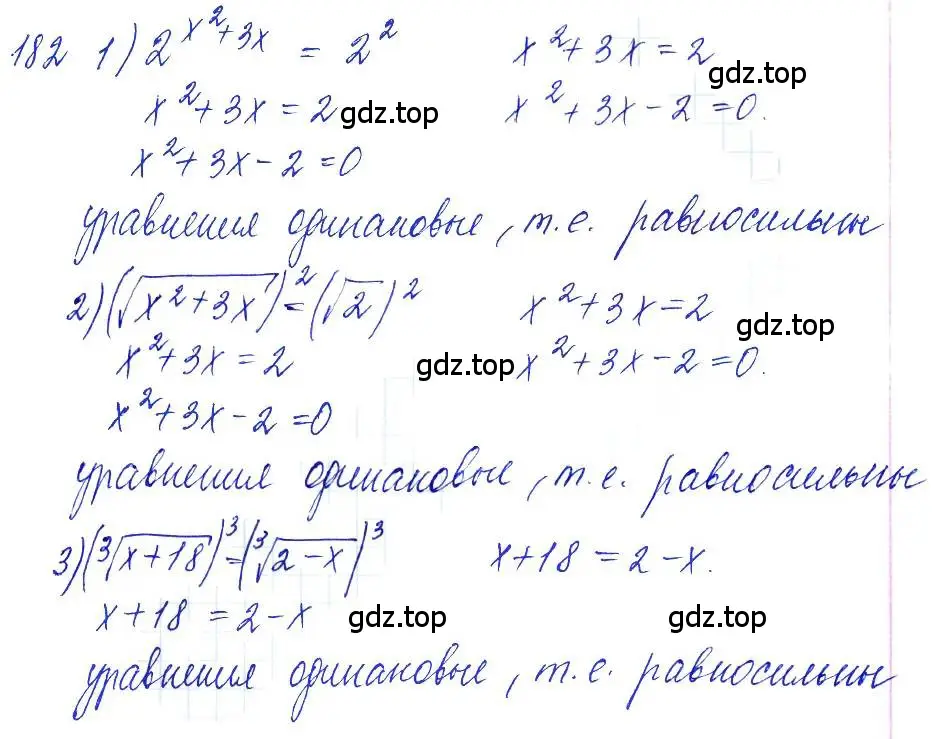 182 1) 2^{x²+3x} = 2² x²+3x=2
gdz.top
x²+3x=2 gdz.top x²+3x-2=0.
x²+3x-2=0
уравнения одинаковые, т.е. равносильны
2) (√(x²+3x))²=(√2)² x²+3x=2
gdz.top
x²+3x=2 gdz.top x²+3x-2=0.
x²+3x-2=0
уравнения одинаковые, т.е. равносильны
3) (∛(x+18))³=(∛(2-x))³ x+18=2-x.
x+18=2-x gdz.top gdz.top
уравнения одинаковые, т.е. равносильны